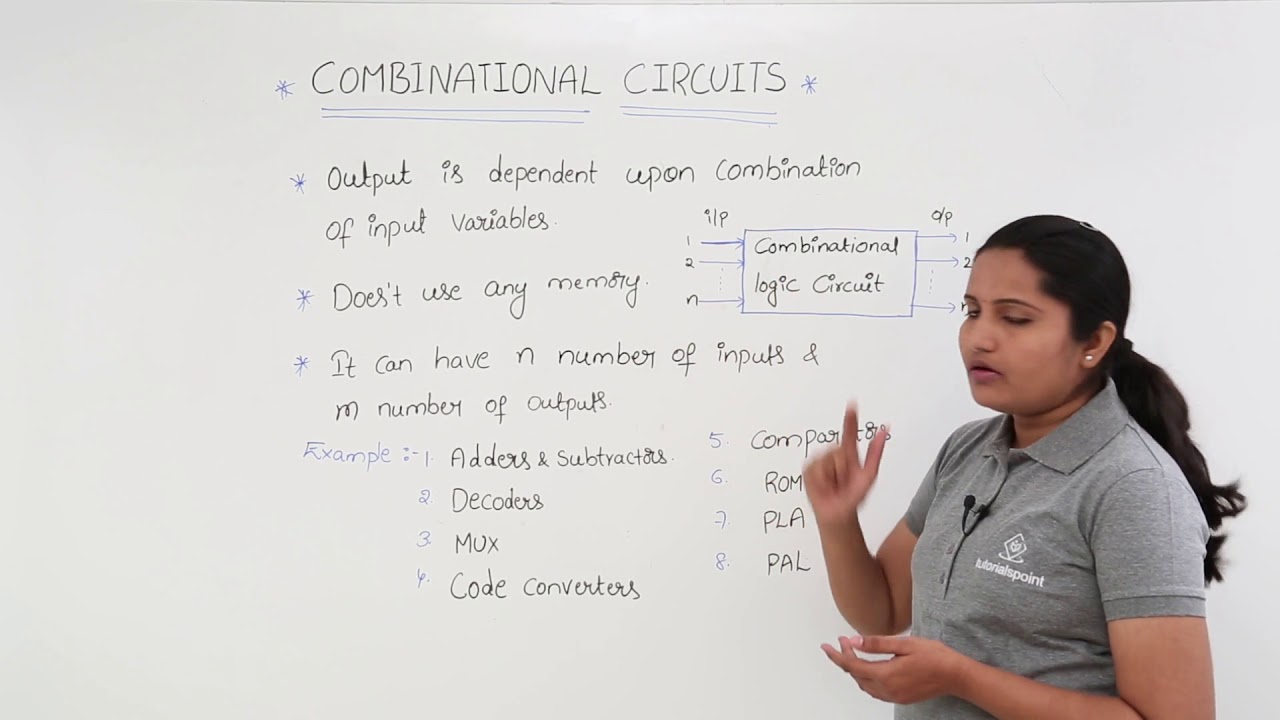 * COMBINATIONAL CIRCUITS *
* Output is dependent upon combination
of input variables.
i/p
o/p
1
1
2
2
n
Combinational
logic Circuit
* Does't use any memory.
* It can have n number of inputs &
m number of outputs.
Example :- 1. Adders & Subtractors.
2. Decoders
3. MUX
4. Code converters
5. Comparators
6. ROM
7. PLA
8. PAL
tutorialspoint